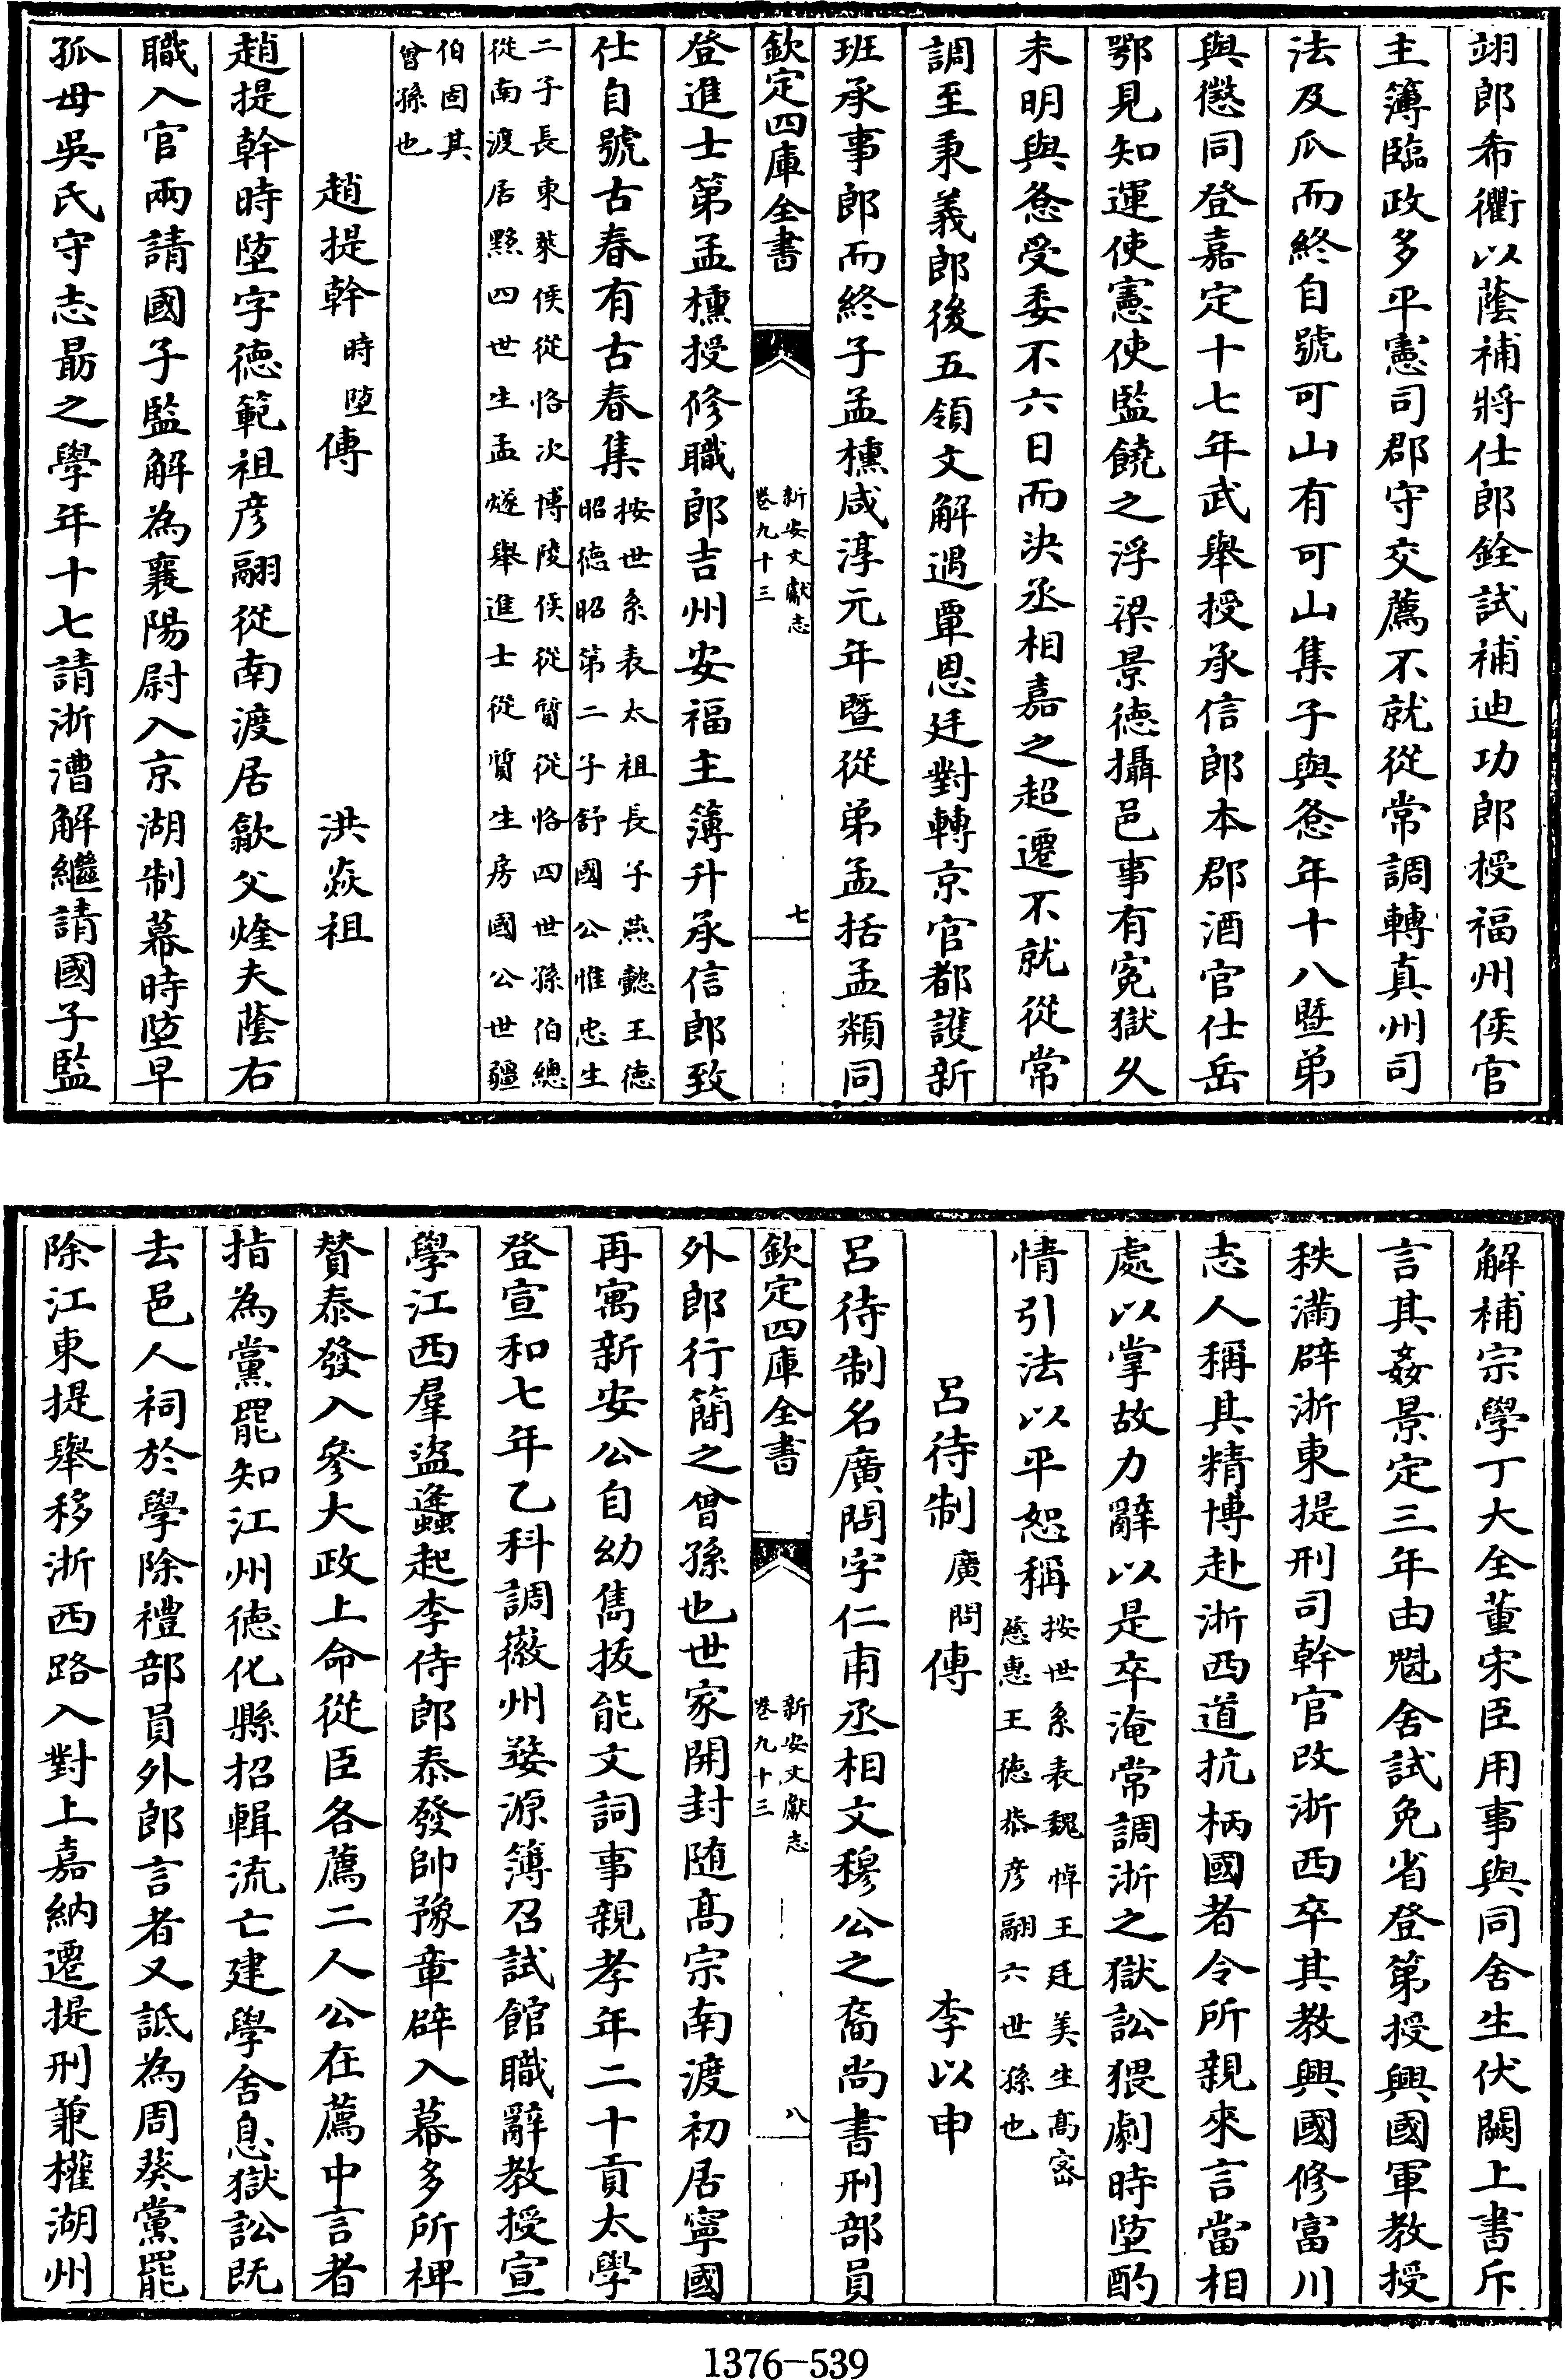 翊郎希衢以蔭補將仕郎銓試補迪功郎授福州侯官
主簿臨政多平憲司郡守交薦不就從常調轉真州司
法及瓜而終自號可山有可山集子與𢡟年十八暨弟
與懲同登嘉定十七年武舉授承信郎本郡酒官仕岳
鄂見知運使憲使監饒之浮梁景德攝邑事有寃獄久
未明與𢡟受委不六日而決丞相嘉之超遷不就從常
調至秉義郎後五領文解遇覃恩廷對轉京官都護新
班承事郎而終子孟櫄咸淳元年暨從弟孟括孟纇同
欽定四庫全書
新安文獻志
卷九十三
七
登進士第孟櫄授修職郎吉州安福主簿升承信郎致
仕自號古春有古春集按世系表太祖長子燕懿王德
昭德昭第二子舒國公惟忠生
二子長東萊侯從恪次博陵侯從質從恪四世孫伯總
從南渡居黟四世生孟燧舉進士從質生房國公世疆
伯固其
曾孫也
趙提幹時埅傳 洪焱祖
趙提幹時埅字德範祖彦翮從南渡居歙父煃夫蔭右
職入官兩請國子監解為襄陽尉入京湖制幕時埅早
孤母吳氏守志勗之學年十七請浙漕解繼請國子監
解補宗學丁大全董宋臣用事與同舍生伏闕上書斥
言其姦景定三年由魁舍試免省登第授興國軍教授
秩滿辟浙東提刑司幹官改浙西卒其教興國修富川
志人稱其精博赴浙西道抗柄國者令所親來言當相
處以掌故力辭以是卒淹常調浙之獄訟猥劇時埅酌
情引法以平恕稱按世系表魏悼王廷美生高密
慈惠王德恭彦翮六世孫也
吕待制廣問傳 李以申
吕待制名廣問字仁甫丞相文穆公之裔尚書刑部員
欽定四庫全書
新安文獻志
卷九十三
八
外郎行簡之曾孫也世家開封随高宗南渡初居寧國
再寓新安公自幼雋拔能文詞事親孝年二十貢太學
登宣和七年乙科調徽州婺源簿召試館職辭教授宣
學江西羣盜蠭起李侍郎泰發帥豫章辟入幕多所裨
賛泰發入參大政上命從臣各薦二人公在薦中言者
指為黨罷知江州德化縣招輯流亡建學舍息獄訟既
去邑人祠於學除禮部員外郎言者又詆為周葵黨罷
除江東提舉移浙西路入對上嘉納遷提刑兼權湖州
1376-539